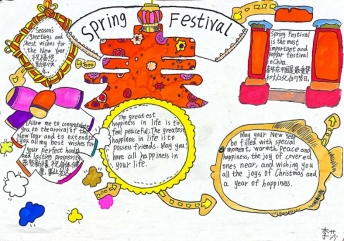 Spring Festival
Season's
Greetings and
best wishes for
the New Year
Spring Festival
is the most
important and
popular festival
in China.
Allow me to congratulate
you to the arrival of the
New Year and to extend to
you all my best wishes for
your perfect health
and lasting prosperity.
The greatest
happiness in life is to
feel peaceful; the greatest
happiness in life is to
possess friends. May you
have all happiness in
your life.
May your New Year
be filled with special
moment, warmth, peace and
happiness, the joy of covered
ones near, and wishing you
all the joys of Christmas and
a year of happiness.